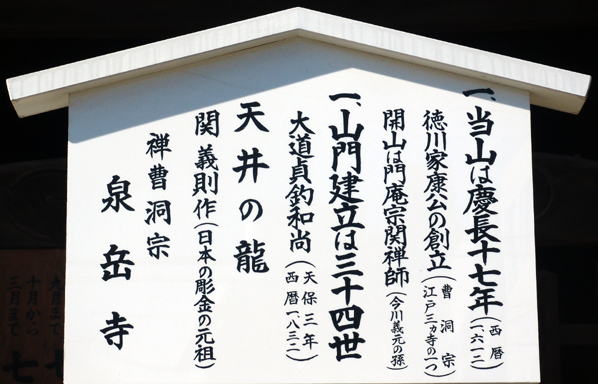 一、当山は慶長十七年(西暦一、六一二)
徳川家康公の創立(曹洞宗江戸三ヵ寺の一つ)
開山は門庵宗関禅師(今川義元の孫)
一、山門建立は三十四世
大道貞釣和尚(天保三年西暦一、八三二)
天井の龍
関義則作(日本の彫金の元祖)
禅曹洞宗
泉岳寺
十月から
三月まで